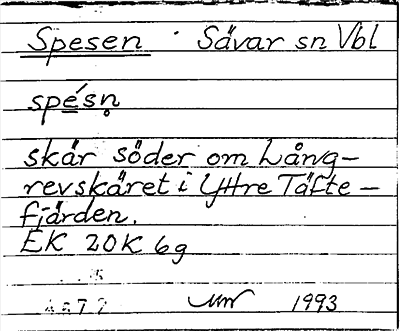 Spesen · Sävar sn Vbl
spésn̥
skär söder om Lång-
revskäret i Yttre Täfte-
fjärden.
EK 20K 6g
1993